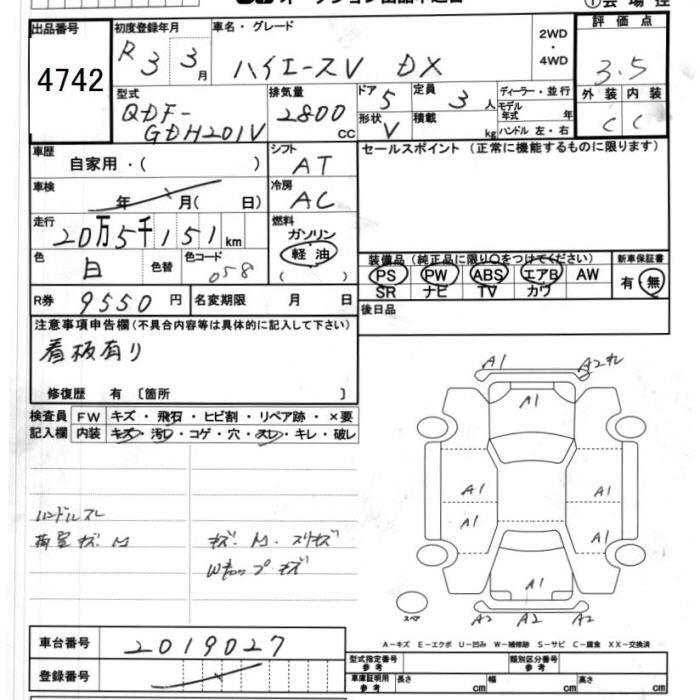 オークション出品申込書
①会場控
出品番号
4742
初度登録年月
R 3 3月
車名・グレード
ハイエースV DX
2WD・4WD
評価点
3.5
外装 内装
C C
型式
QDF-
GDH201V
排気量
2800cc
ドア 5
定員 3人
形状 V
積載 kg
ディーラー・並行
モデル年式 年
ハンドル 左・右
車歴
自家用・( )
シフト
AT
車検
年 月( 日)
冷房
AC
走行
20万5千151km
燃料
ガソリン
軽油
( )
色
白
色替
色コード
058
R券 9550円
名変期限 月 日
セールスポイント(正常に機能するものに限ります)
装備品(純正品に限り○をつけてください)
PS PW ABS エアB AW
SR ナビ TV カワ
新車保証書
有・無
後日品
注意事項申告欄(不具合内容等は具体的に記入して下さい)
看板有り
修復歴 有〔箇所 〕
検査員記入欄
FW キズ・飛石・ヒビ割・リペア跡・×要
内装 キズ・汚レ・コゲ・穴・スレ・キレ・破レ
ハンドルスレ
荷室キズ M
キズ M スリキズ
Wキャップ キズ
A1 A2ワレ
A1
A1 A1
A1 A1
A1
A2 A2 A2
スペア
A-キズ E-エクボ U-凹み W-補修跡 S-サビ C-腐食 XX-交換済
車台番号
2019027
登録番号
型式指定番号 参考
類別区分番号 参考
車庫証明用 参考
長さ cm
幅 cm
高さ cm